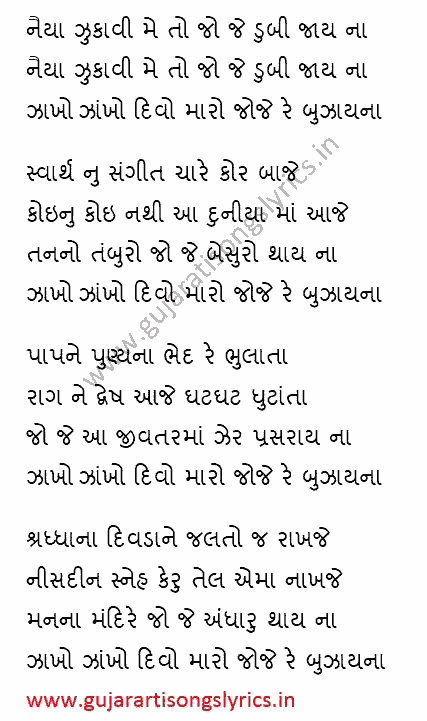 નૈયા ઝુકાવી મે તો જો જે ડુબી જાય ના
નૈયા ઝુકાવી મે તો જો જે ડુબી જાય ના
ઝાખો ઝાંખો દિવો મારો જોજે રે બુઝાયના
સ્વાર્થ નુ સંગીત ચારે કોર બાજે
કોઇનુ કોઇ નથી આ દુનીયા માં આજે
તનનો તંબુરો જો જે બેસુરો થાય ના
ઝાખો ઝાંખો દિવો મારો જોજે રે બુઝાયના
પાપને પુણ્યના ભેદ રે ભુલાતા
રાગ ને દ્વેષ આજે ઘટઘટ ઘુટાંતા
જો જે આ જીવતરમાં ઝેર પ્રસરાય ના
ઝાખો ઝાંખો દિવો મારો જોજે રે બુઝાયના
શ્રધ્ધાના દિવડાને જલતો જ રાખજે
નીસદીન સ્નેહ કેરુ તેલ એમા નાખજે
મનના મંદિરે જો જે અંધારુ થાય ના
ઝાખો ઝાંખો દિવો મારો જોજે રે બુઝાયના
www.gujarartisongslyrics.in
www.gujaratisongslyrics.in